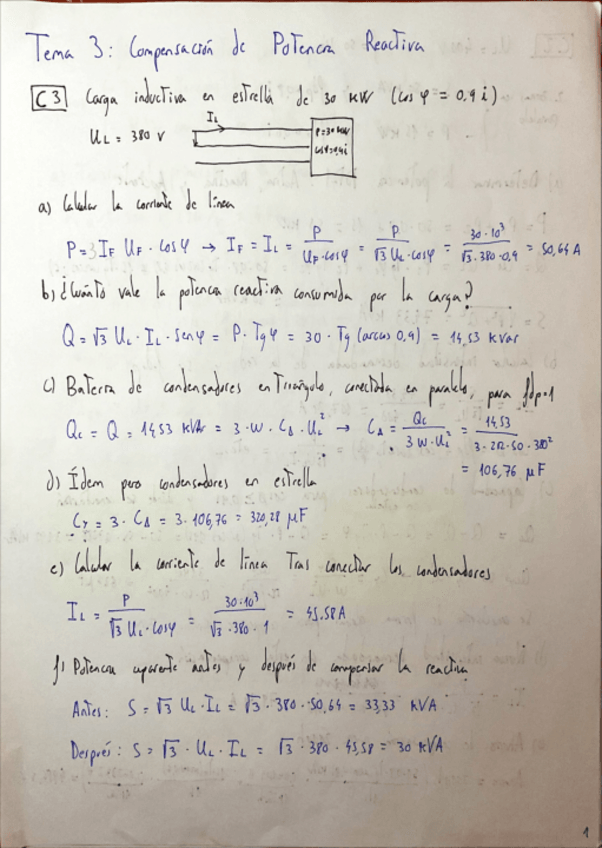 Tema 3: Compensación de Potencia Reactiva
C3 Carga inductiva en estrella de 30 KW (cos φ = 0,9 i)
UL = 380 V
IL
P=30 KW
cosφ=0,9i
a) Calcular la corriente de línea
P = 3 IF UF · cosφ → IF = IL = P / UF·cosφ = P / √3 UL·cosφ = 30·10³ / √3·380·0,9 = 50,64 A
b) ¿Cuánto vale la potencia reactiva consumida por la carga?
Q = √3 UL · IL · senφ = P · Tgφ = 30 · Tg (arcos 0,9) = 14,53 kVar
c) Batería de condensadores en Triángulo, conectada en paralelo, para fdp=1
Qc = Q = 14,53 kVAr = 3 · W · CΔ · UL² → CΔ = Qc / 3 W·UL² = 14,53 / 3·2π·50·380² = 106,76 μF
d) Ídem pero condensadores en estrella
CY = 3 · CΔ = 3 · 106,76 = 320,28 μF
e) Calcular la corriente de línea Tras conectar los condensadores
IL = P / √3 UL·cosφ = 30·10³ / √3·380·1 = 45.58 A
f) Potencia aparente antes y después de compensar la reactiva
Antes: S = √3 UL · IL = √3 · 380 · 50,64 = 33,33 KVA
Después: S = √3 · UL · IL = √3 · 380 · 45,58 = 30 KVA
1